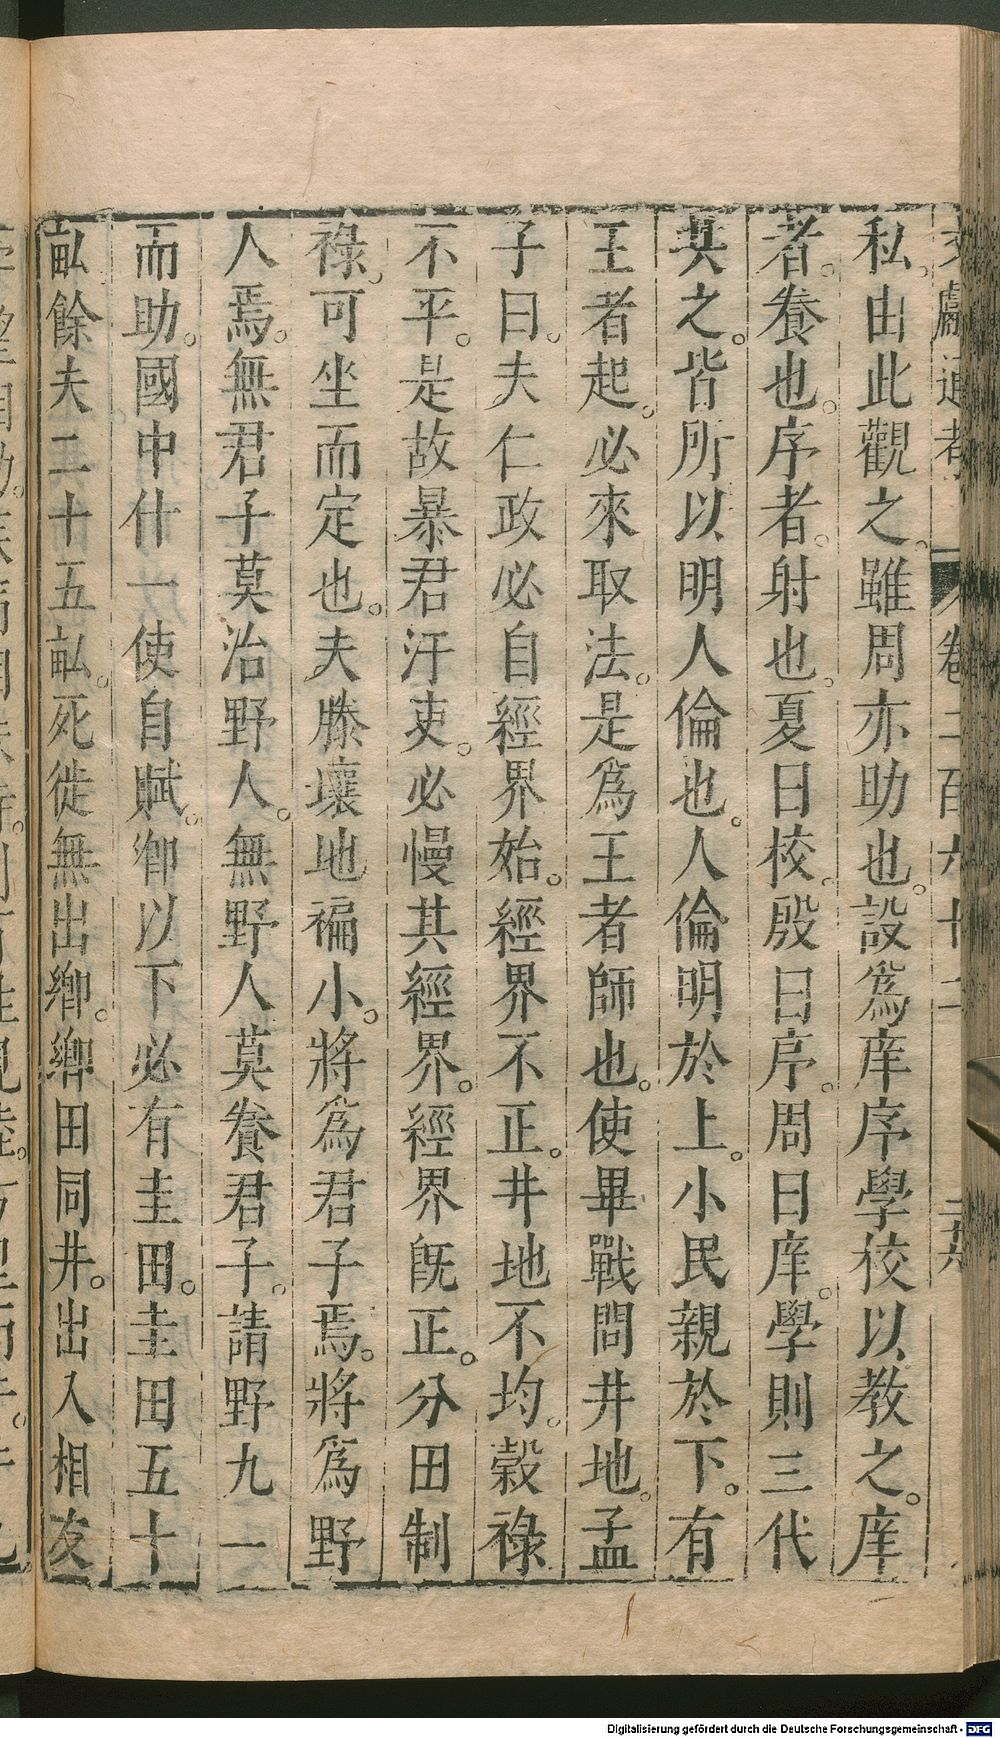 文獻通考 卷二百六十二
私。由此觀之。雖周亦助也。設爲庠序學校以教之。庠
者。養也。序者。射也。夏曰校。殷曰序。周曰庠。學則三代
共之。皆所以明人倫也。人倫明於上。小民親於下。有
王者起。必來取法。是爲王者師也。使畢戰問井地。孟
子曰。夫仁政必自經界始。經界不正。井地不均。榖祿
不平。是故暴君汙吏。必慢其經界。經界旣正。分田制
祿。可坐而定也。夫滕壤地褊小。將爲君子焉。將爲野
人焉。無君子莫治野人。無野人莫養君子。請野九一
而助。國中什一使自賦。卿以下必有圭田。圭田五十
畝。餘夫二十五畝。死徙無出鄉。鄉田同井。出入相友
Digitalisierung gefördert durch die Deutsche Forschungsgemeinschaft - DFG